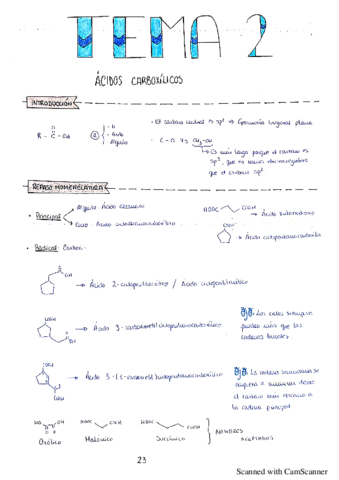 TEMA 2
ÁCIDOS CARBOXÍLICOS
INTRODUCCIÓN
R - C - OH
O
- H
- Arilo
- Alquilo
El carbono carbonilo es sp² → Geometría trigonal plana
C-O Vs CH₃-OH
Es más largo porque el carbono es
sp³, que es menos electronegativo
que el carbono sp²
REPASO NOMENCLATURA
Principal
Alquilo Ácido
Ciclo Ácido
HOOC COOH → Ácido
COOH → Ácido ciclopentanocarboxílico
Radical: Carboxi-
OH → Ácido 2-ciclopentilacético / Ácido ciclopentilacético
COOH → Ácido 3-carboximetilciclopentanocarboxílico
OH
Los ciclos siempre
pueden más que las
cadenas lineales.
COOH → Ácido 3-(1-carboxietil)ciclopentanocarboxílico
COOH
La cadena secundaria se
empieza a numerar desde
el carbono más cercano a
la cadena principal
HO OH HOOC COOH HOOC COOH
Oxálico Malónico Succínico
NOMBRES
ACEPTADOS
23
Scanned with CamScanner